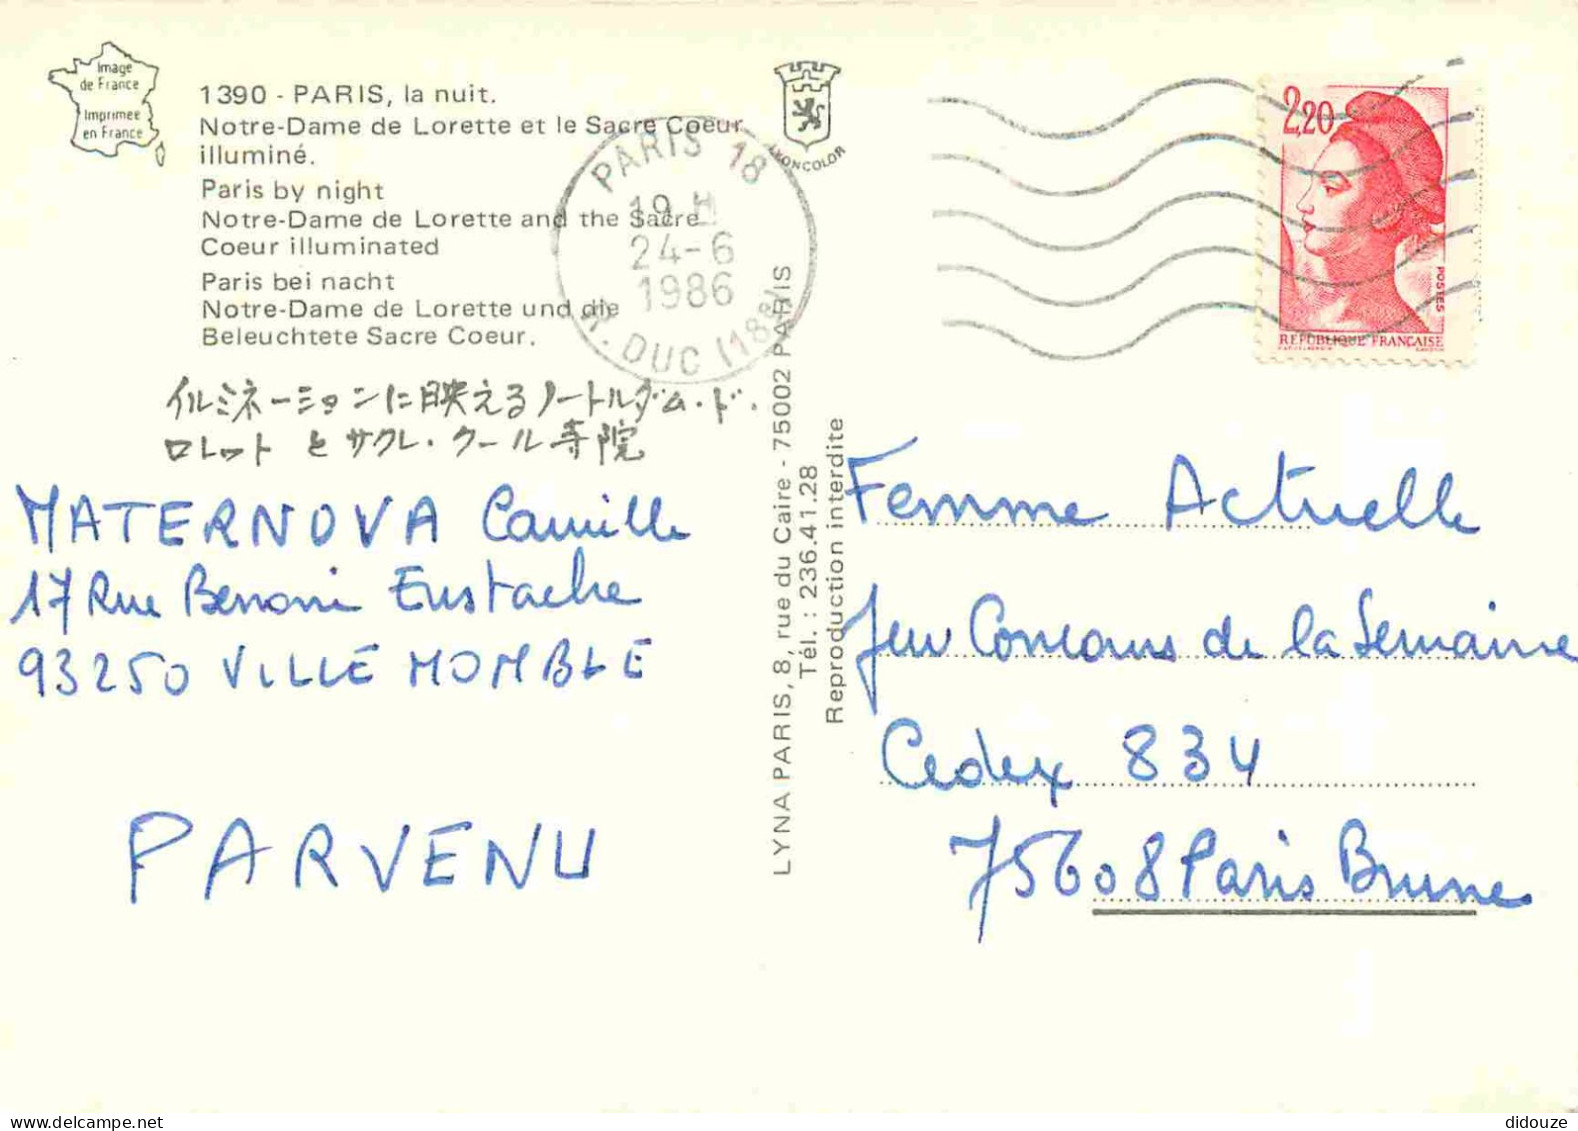 Image
de France
Imprimee
en France
1390 - PARIS, la nuit.
Notre-Dame de Lorette et le Sacre Coeur
illuminé.
Paris by night
Notre-Dame de Lorette and the Sacre
Coeur illuminated
Paris bei nacht
Notre-Dame de Lorette und die
Beleuchtete Sacre Coeur.
イルミネーションに映えるノートルダム・ド・
ロレット とサクレ・クール寺院
LYONCOLOR
PARIS 18
19 H
24-6
1986
R. DUC (188)
2,20
POSTES
REPUBLIQUE FRANCAISE
MATERNOVA Camille
17 Rue Benoni Eustache
93250 VILLE MOMBLE
PARVENU
LYNA PARIS, 8, rue du Caire - 75002 PARIS
Tél. : 236.41.28
Reproduction interdite
Femme Actuelle
Jeu Concours de la Semaine
Cedex 834
75608 Paris Brune
didouze